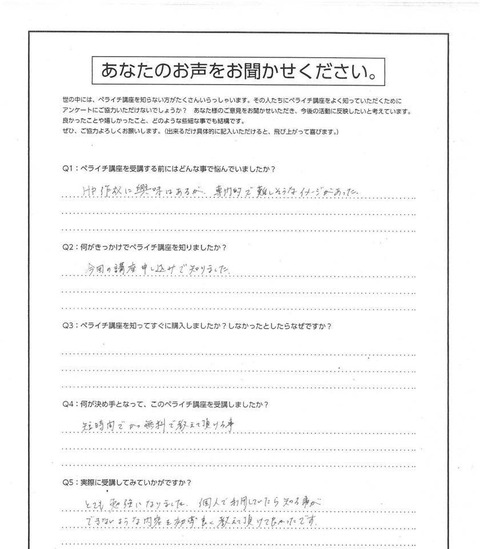 あなたのお声をお聞かせください。
世の中には、ペライチ講座を知らない方がたくさんいらっしゃいます。その人たちにペライチ講座をよく知っていただくために
アンケートにご協力いただけないでしょうか？ あなた様のご意見をお聞かせいただき、今後の活動に反映したいと考えています。
良かったことや嬉しかったこと、どのような些細な事でも結構です。
ぜひ、ご協力よろしくお願いします。(出来るだけ具体的に記入いただけると、飛び上がって喜びます。)
Q1：ペライチ講座を受講する前にはどんな事で悩んでいましたか？
HP作成に興味はあるが、専門的で難しそうなイメージがあった。
Q2：何がきっかけでペライチ講座を知りましたか？
今回の講座申し込みで知りました
Q3：ペライチ講座を知ってすぐに購入しましたか？しなかったとしたらなぜですか？
Q4：何が決め手となって、このペライチ講座を受講しましたか？
短時間でかつ無料で教えて頂ける事
Q5：実際に受講してみていかがですか？
とても勉強になりました。個人で利用していたら知る事が
できないような内容も効率良く教えて頂けてよかったです